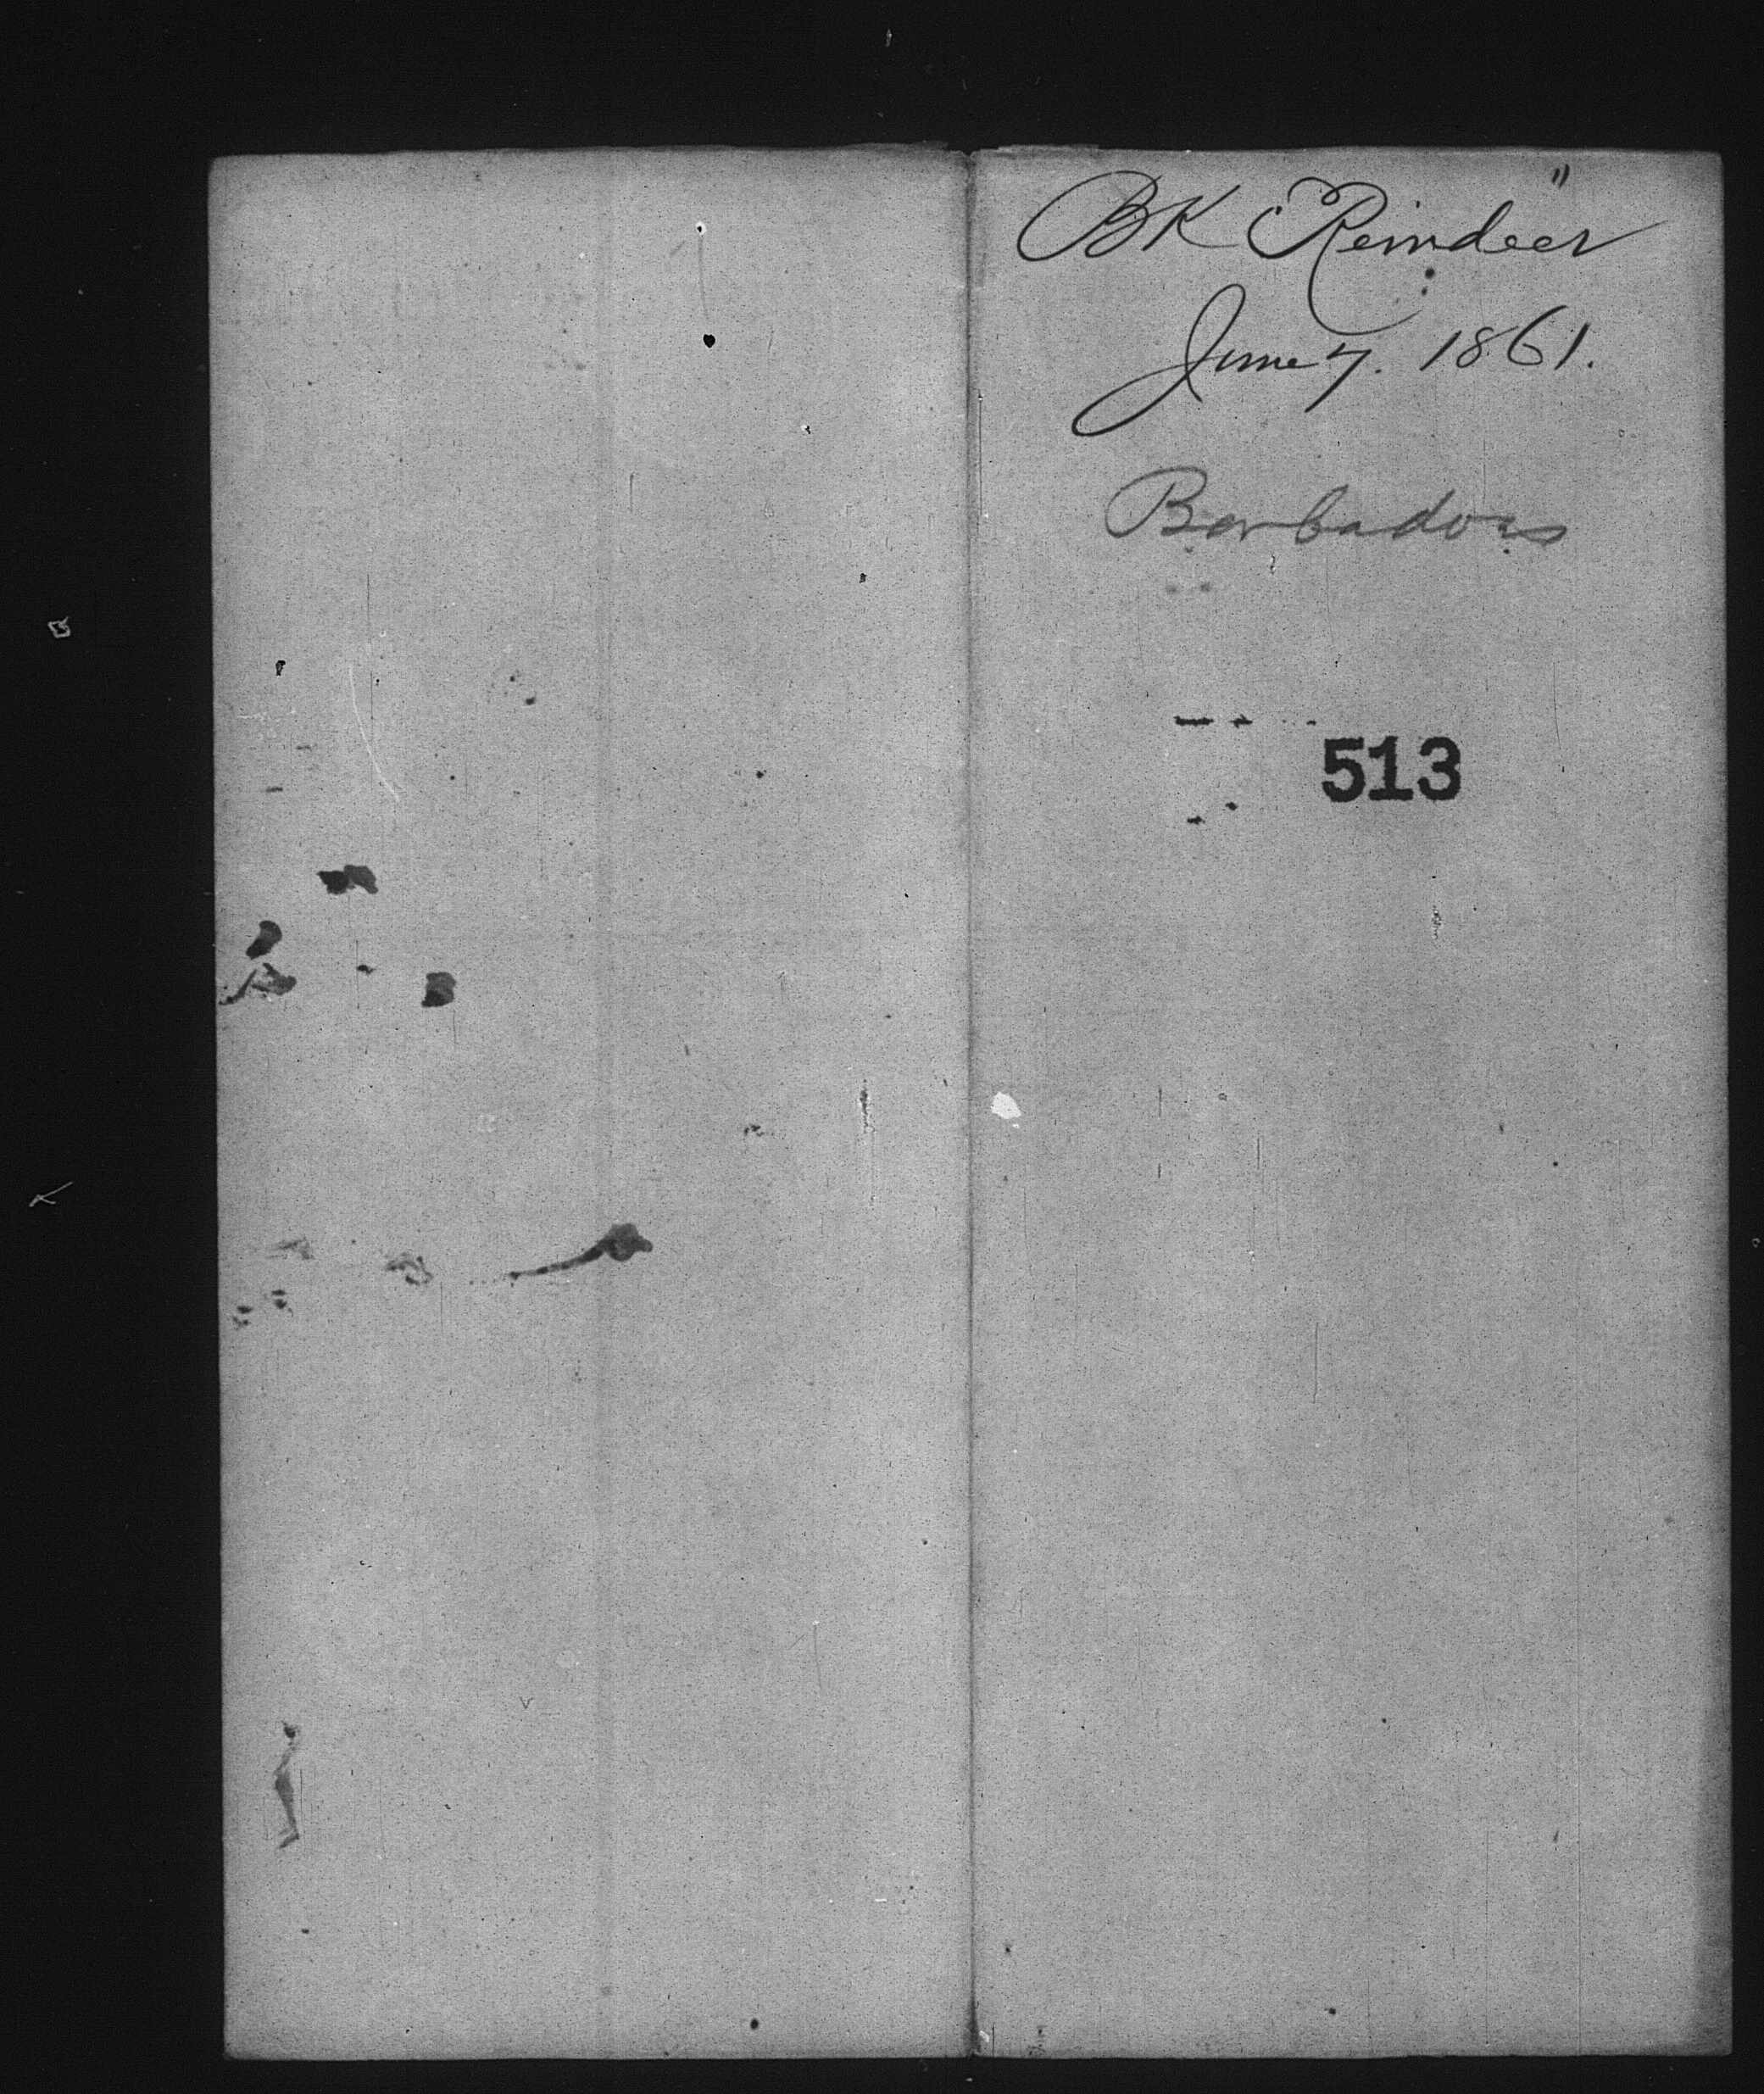 BK "Reindeer"
June 7. 1861.
Barbadoes
513